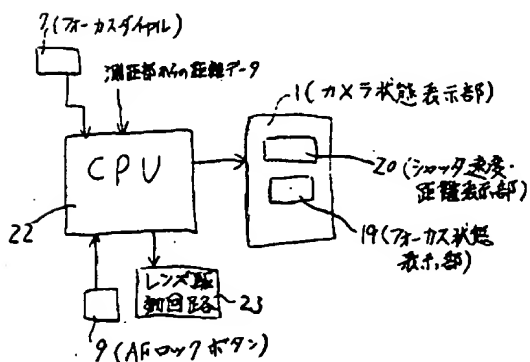 7(フォーカスダイヤル)
測距部からの距離データ
1(カメラ状態表示部)
CPU
20(シャッタ速度・
距離表示部)
22
19(フォーカス状態
表示部)
レンズ駆
動回路
23
9(AFロックボタン)